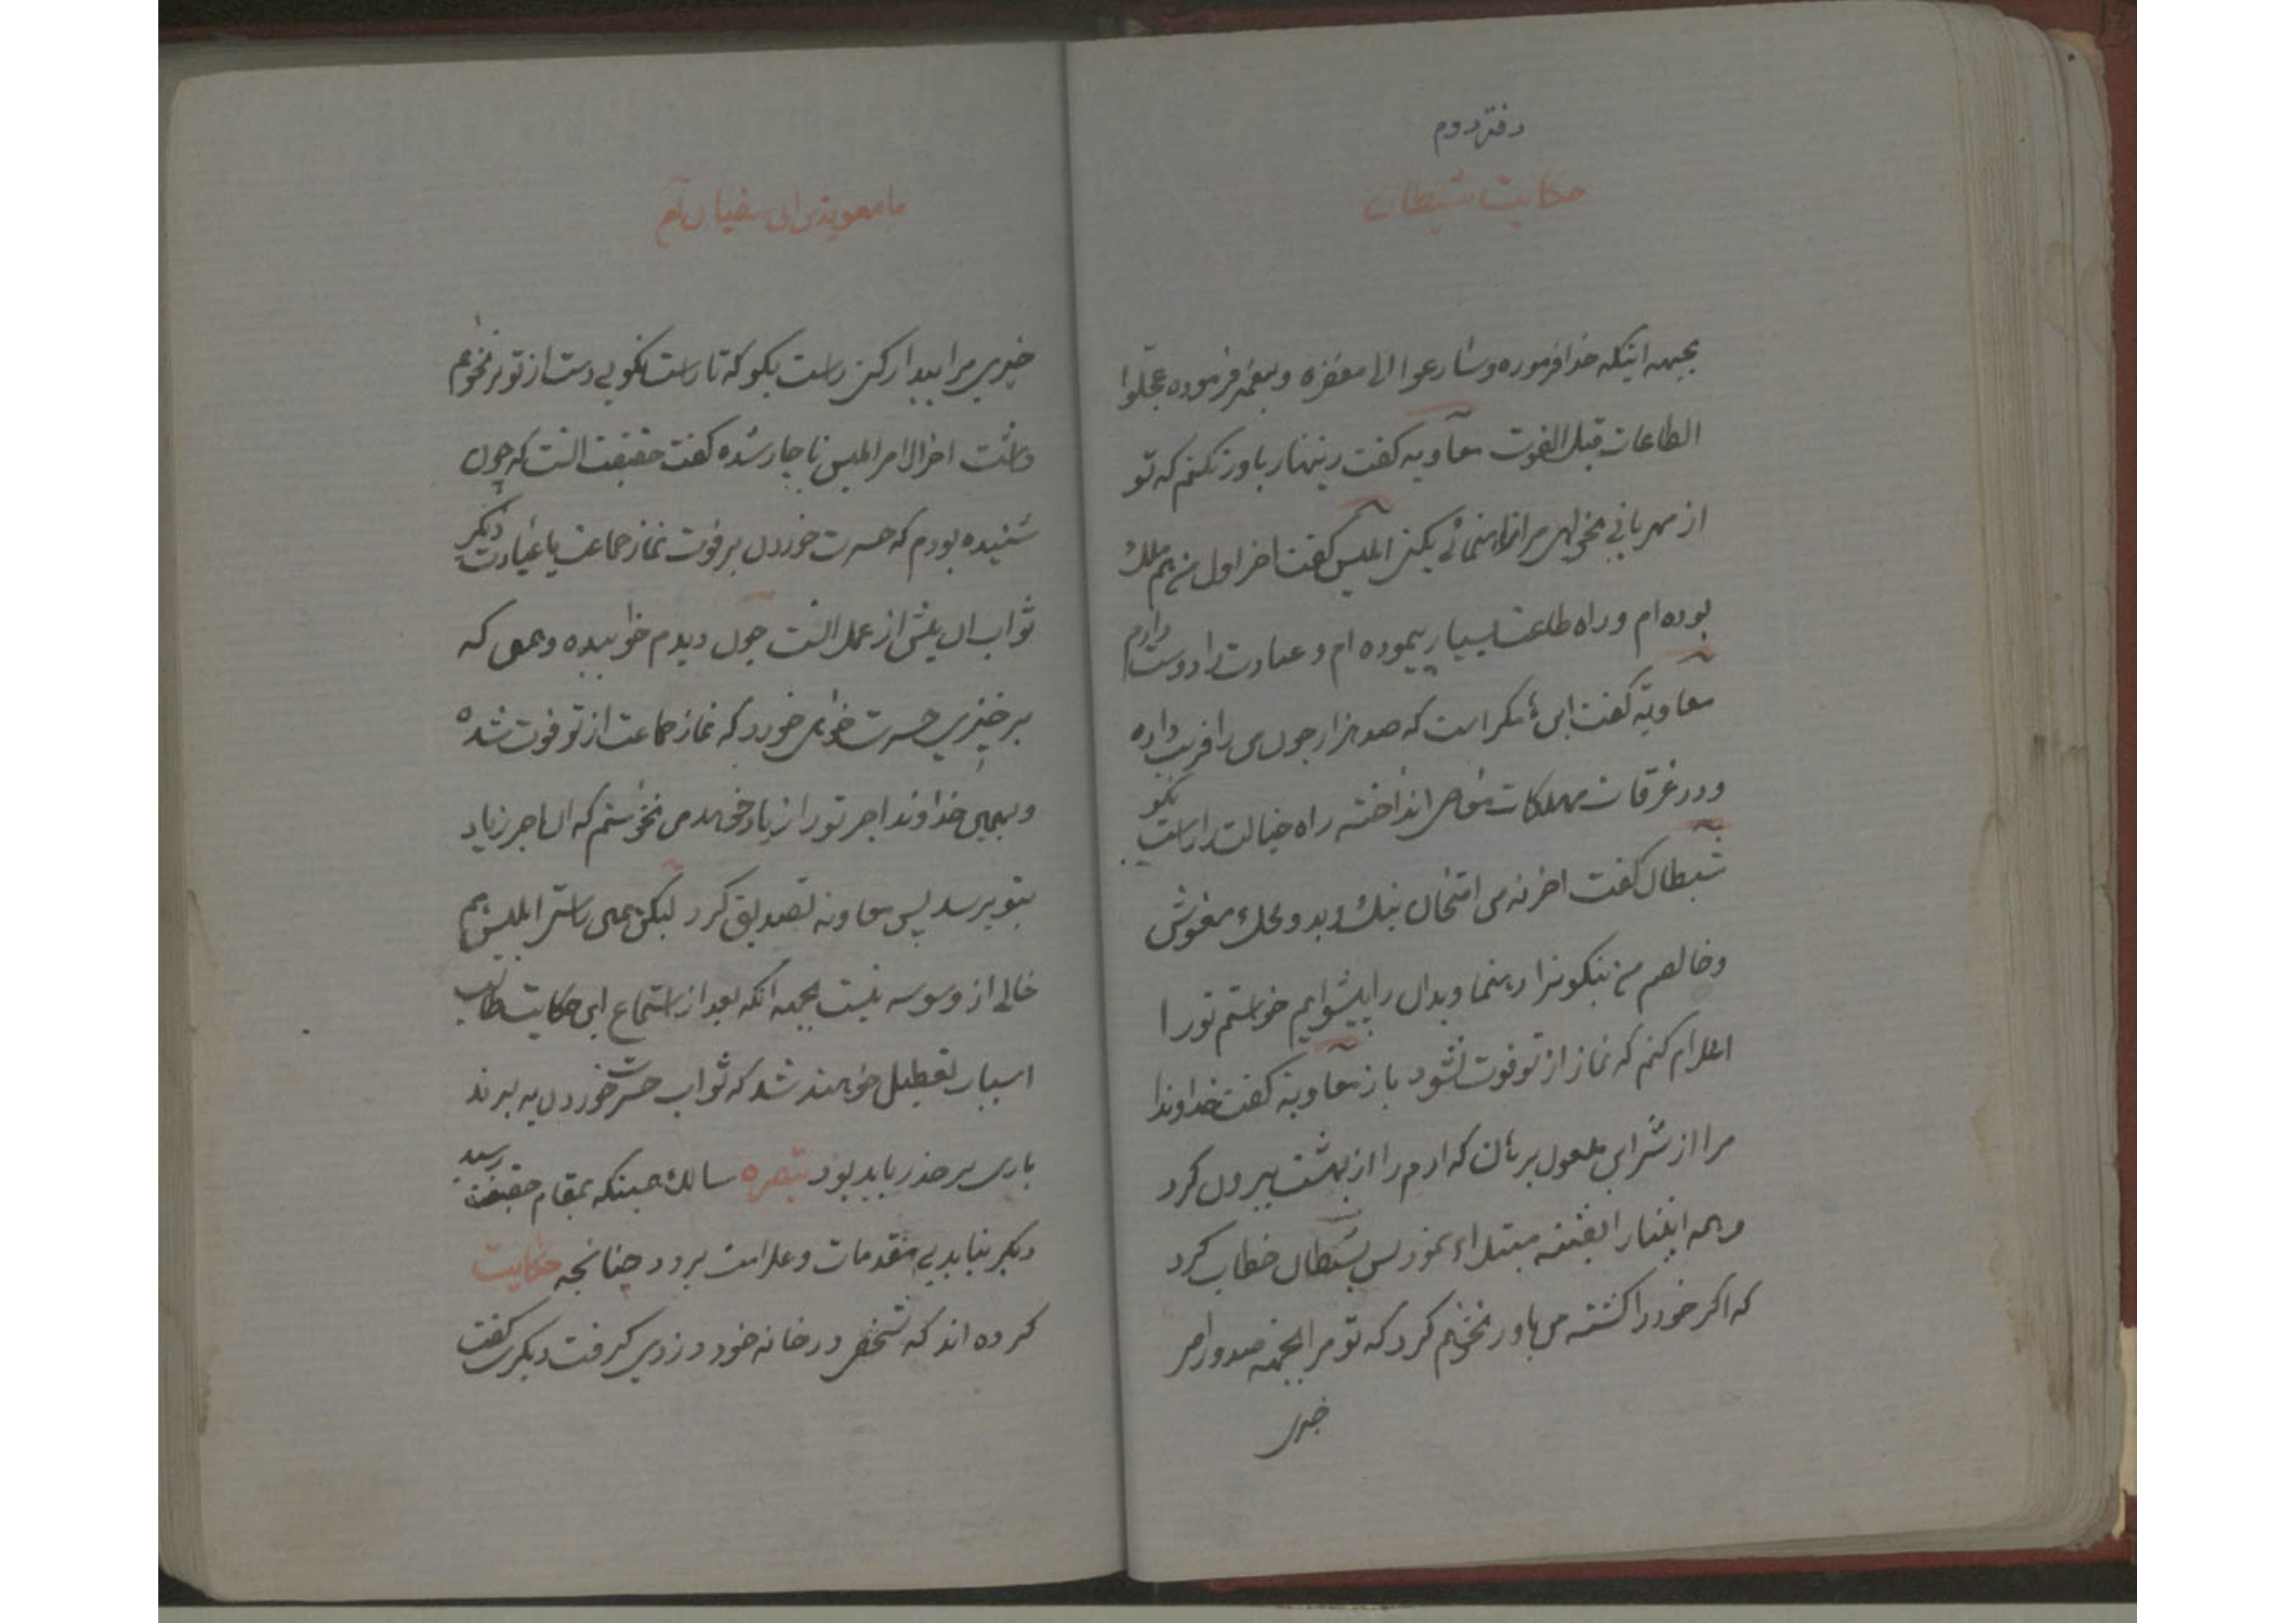 دفتر دوم
حکایت شیطان
بجهه اینکه خدا فرموده وسارعوا الی مغفره و پیغمبر فرموده عجّلوا
الطاعات قبل الفوت معاویه گفت زینهار باور نکنم که تو
از مهربانی بخواهی مرا راهنمائی بکنی ابلیس گفت اخر اول من هم ملک
بوده ام و راه طاعت بسیار پیموده ام و عبادت را دوست دارم
معاویه گفت این مکر است که صد هزار چون من را فریب داده
و در غرقات مهلکات انداخته راه خیالت را راست بگو
شیطان گفت اخر نه من امتحان نیک و بد و محک مغشوش
و خالصم من نیکو نرا رهنما و بدان را پیشوایم خواستم تو را
اعلام کنم که نماز از تو فوت نشود باز معاویه گفت خداوندا
مرا از شر این ملعون برهان که ادم را از بهشت بیرون کرد
و همه انبیا را بفتنه مبتلاء نمود پس بشیطان خطاب کرد
که اگر خود را کشته من باور نخواهم کرد که تو مرا بجهه صدور امر
خیری
با معویة بن ابی سفیان
خیری مرا بیدار کنی راست بگو که تا راست نگویی دست از تو بر نخواهم
داشت اخر الامر ابلیس ناچار شده گفت حقیقت انست که چون
شنیده بودم که حسرت خوردن بر فوت نماز جماعت یا عبادت دیگر
ثواب ان بیش از عمل انست چون دیدم خوابیده و همین که
بر خیزی حسرت خواهی خورد که نماز جماعت از تو فوت شده
و بهمین خداوند اجر تو را زیاد خواهد من نخواستم که ان اجر زیاد
بتو برسد پس معاویه تصدیق کرد لیکن همین راستی ابلیس هم
خالی از وسوسه نیست بجهه انکه بعد از استماع این حکایت طالب
اسباب تعطیل خواهند شد که ثواب حسرت خوردن به برند
باری بر حذر باید بود تبصره سالک همینکه بمقام حقیقت رسید
دیگر نباید پی مقدمات و علامت برود چنانچه حکایت
کرده اند که شخصی در خانه خود دزدی گرفت دیگری گفت